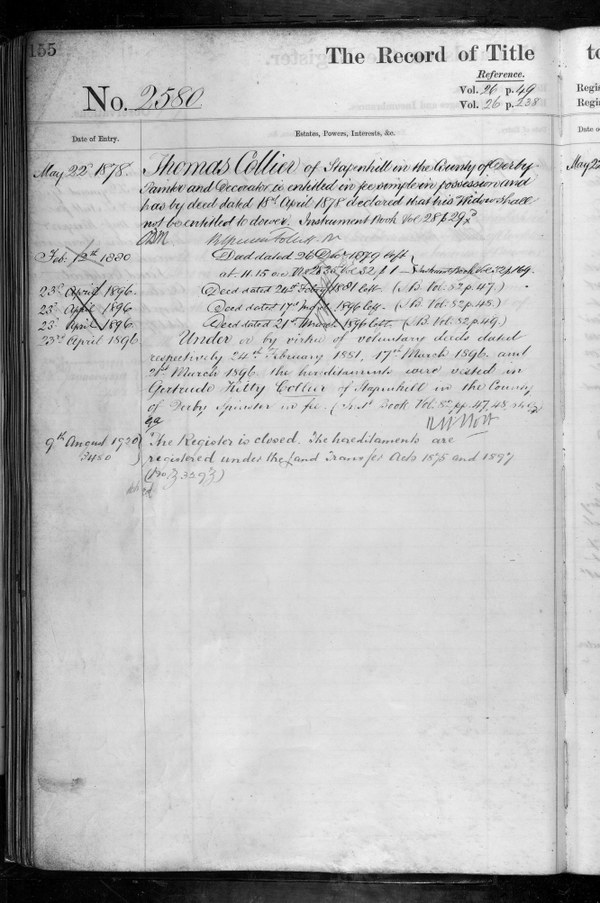 155
The Record of Title
Reference.
Vol. 26 p. 49
No. 2580
Vol. 26 p. 238
Date of Entry.
Estates, Powers, Interests, &c.
May 22d 1878. Thomas Collier of Stapenhill in the County of Derby
Painter and Decorator is entitled in fee simple in possession and
has by deed dated 18th April 1878 declared that his Widow shall
not be entitled to dower. Instrument Book Vol 28 p 29
Feb: 12th 1880 Deed dated 26 Decr 1879 left
at 11.15 a.m. Vol. 32 p. 1 Instrument Book Vol. 32 p. 169.
23d April 1896. Deed dated 24th Feby 1881 left. (I.B. Vol: 82 p. 47.)
23d April 1896 Deed dated 17th March 1896 left. (I.B. Vol: 82 p. 48.)
23d April 1896. Deed dated 21st March 1896 left. (I.B. Vol: 82 p. 49.)
23rd April 1896 Under or by virtue of voluntary deeds dated
respectively 24th February 1881, 17th March 1896 and
21st March 1896 the hereditaments were vested in
Gertrude Kitty Collier of Stapenhill in the County
of Derby Spinster in fee. (Inst Book Vol. 82 pp. 47, 48, & 49)
9th August 1920 The Register is closed. The hereditaments are
3480 registered under the Land Transfer Acts 1875 and 1897
to
Regis
Regis
Date o
May 22